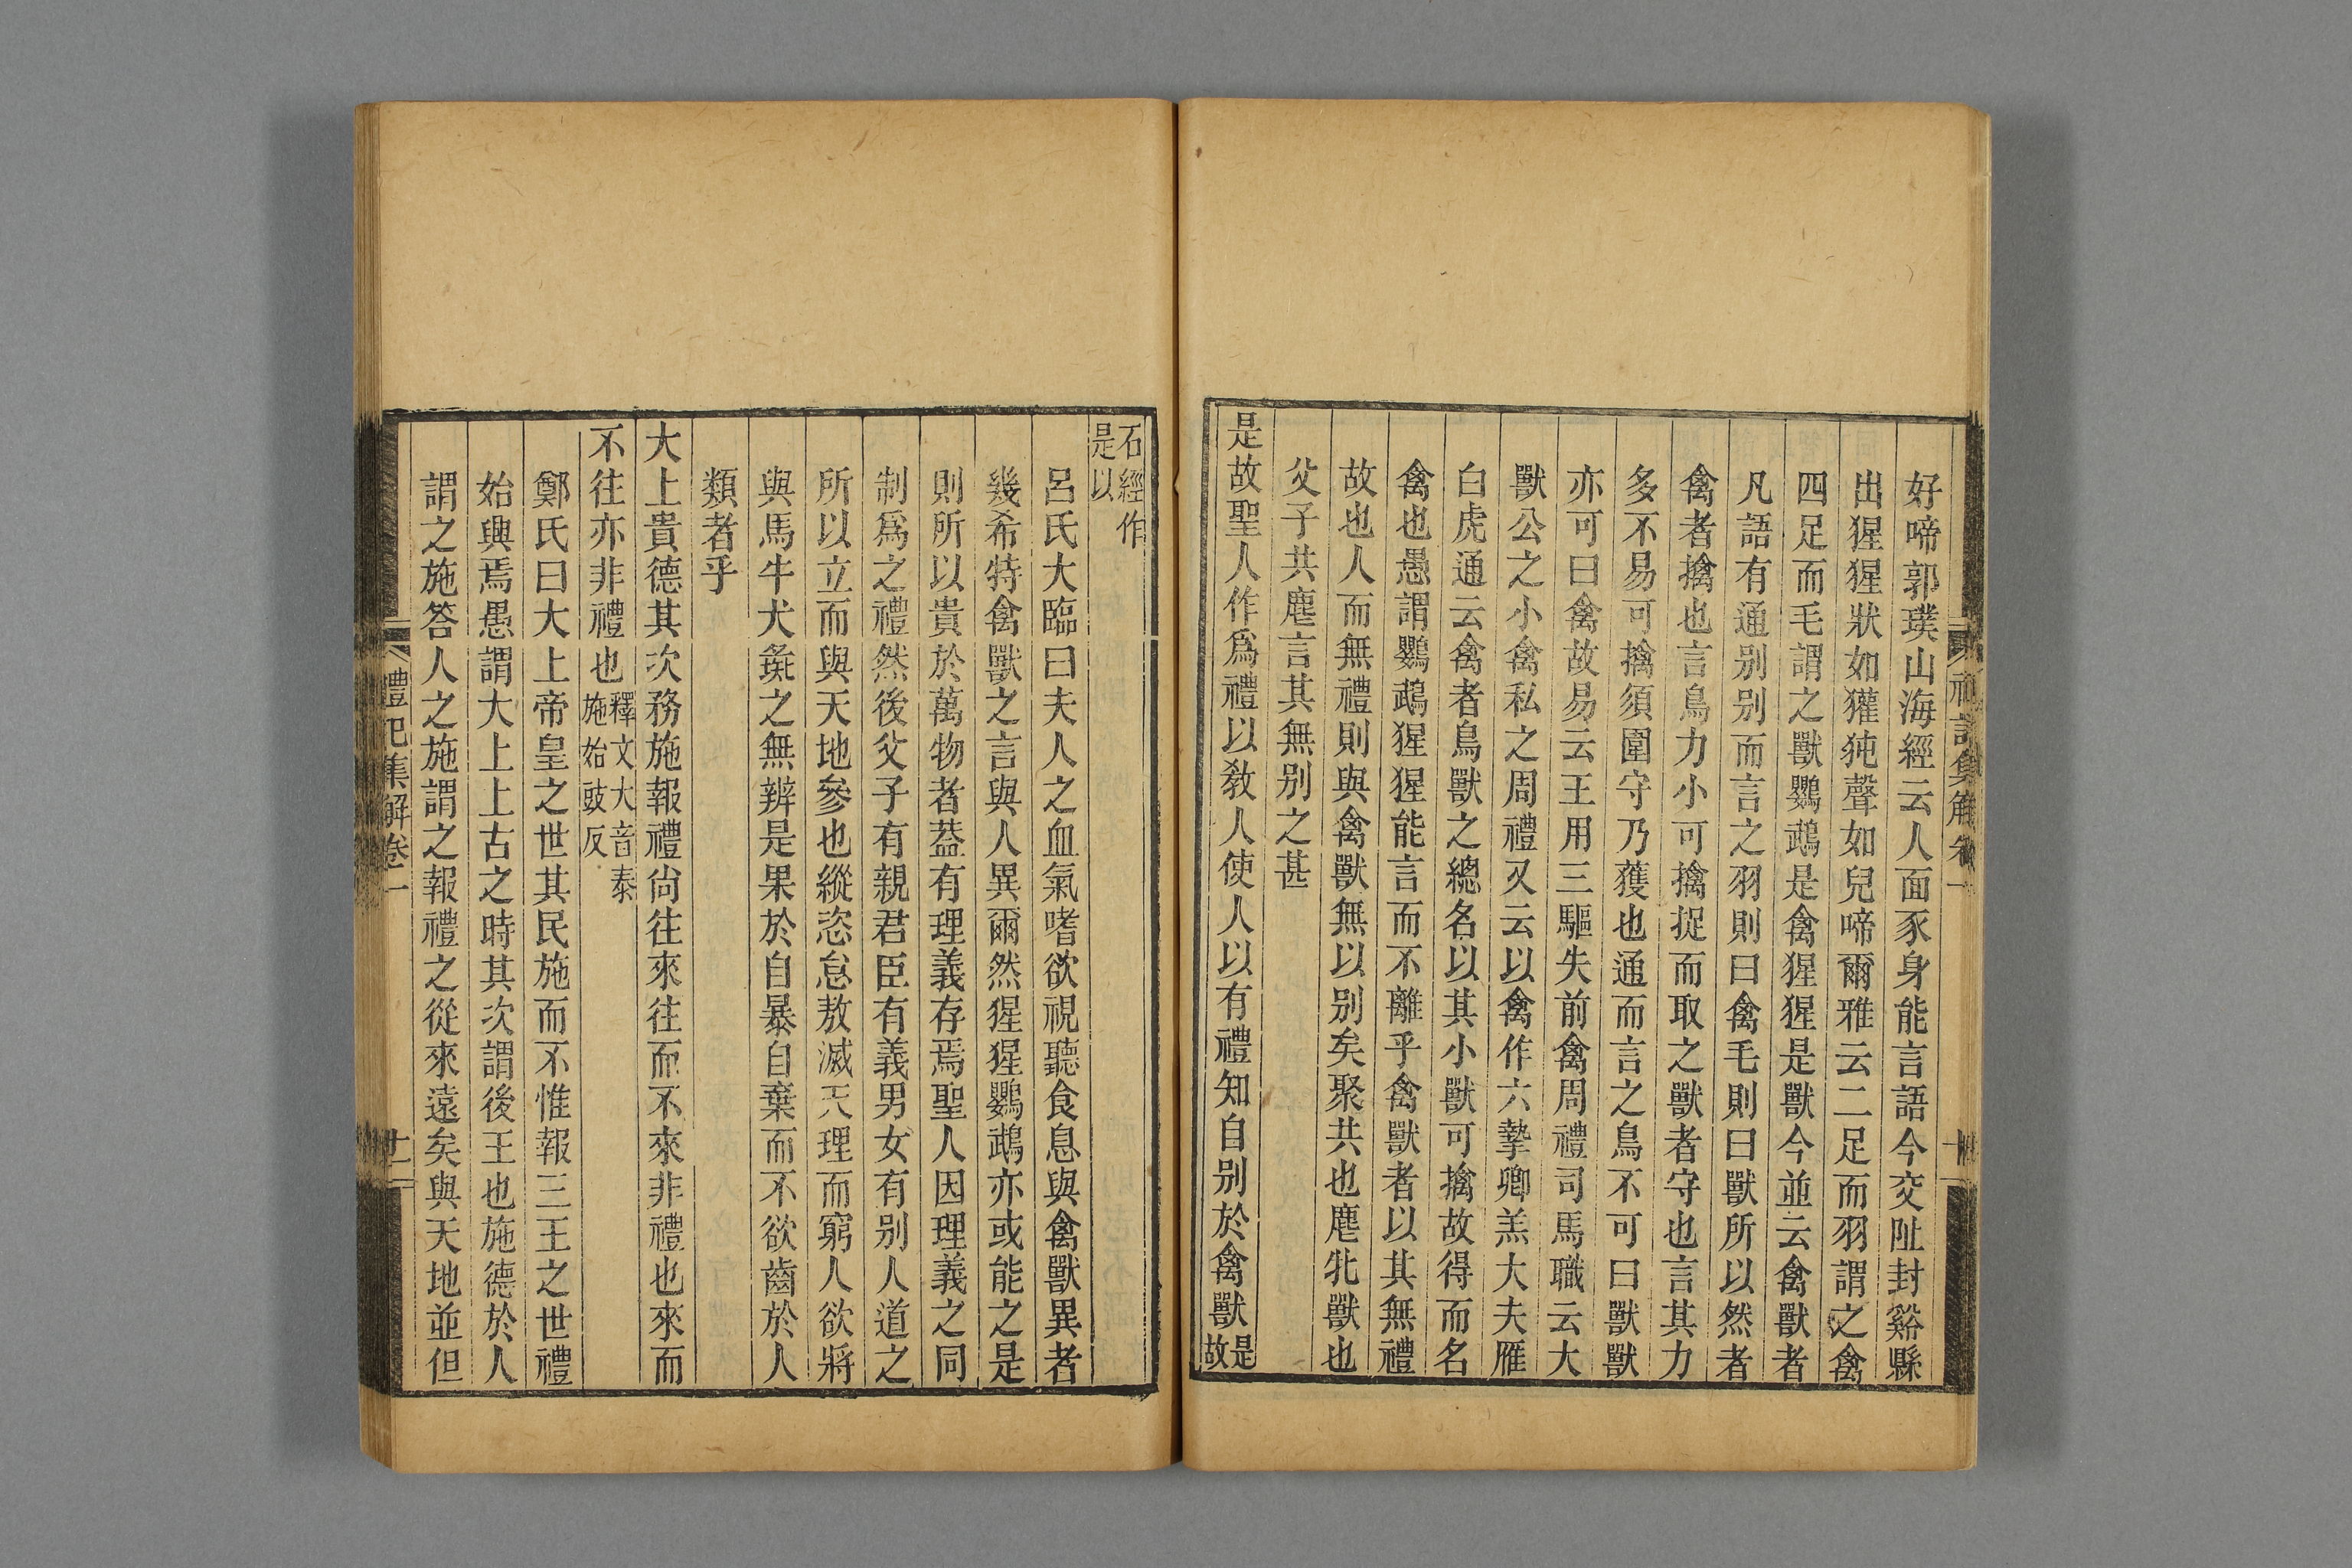 好啼郭璞山海經云人面豕身能言語今交阯封谿縣
出猩猩狀如獾㹠聲如兒啼爾雅云二足而羽謂之禽
四足而毛謂之獸鸚鵡是禽猩猩是獸今並云禽獸者
凡語有通别别而言之羽則曰禽毛則曰獸所以然者
禽者擒也言鳥力小可擒捉而取之獸者守也言其力
多不易可擒須圍守乃獲也通而言之鳥不可曰獸獸
亦可曰禽故易云王用三驅失前禽周禮司馬職云大
獸公之小禽私之周禮又云以禽作六摯卿羔大夫雁
白虎通云禽者鳥獸之總名以其小獸可擒故得而名
禽也愚謂鸚鵡猩猩能言而不離乎禽獸者以其無禮
故也人而無禮則與禽獸無以别矣聚共也麀牝獸也
父子共麀言其無别之甚
是故聖人作爲禮以敎人使人以有禮知自别於禽獸是故
石經作是以
呂氏大臨曰夫人之血氣嗜欲視聽食息與禽獸異者
幾希特禽獸之言與人異爾然猩猩鸚鵡亦或能之是
則所以貴於萬物者葢有理義存焉聖人因理義之同
制爲之禮然後父子有親君臣有義男女有别人道之
所以立而與天地參也縱恣怠敖滅天理而窮人欲將
與馬牛犬彘之無辨是果於自暴自棄而不欲齒於人
類者乎
大上貴德其次務施報禮尙往來往而不來非禮也來而
不往亦非禮也釋文大音泰施始豉反
鄭氏曰大上帝皇之世其民施而不惟報三王之世禮
始興焉愚謂大上上古之時其次謂後王也施德於人
謂之施答人之施謂之報禮之從來遠矣與天地並但
禮記集解卷一
十一